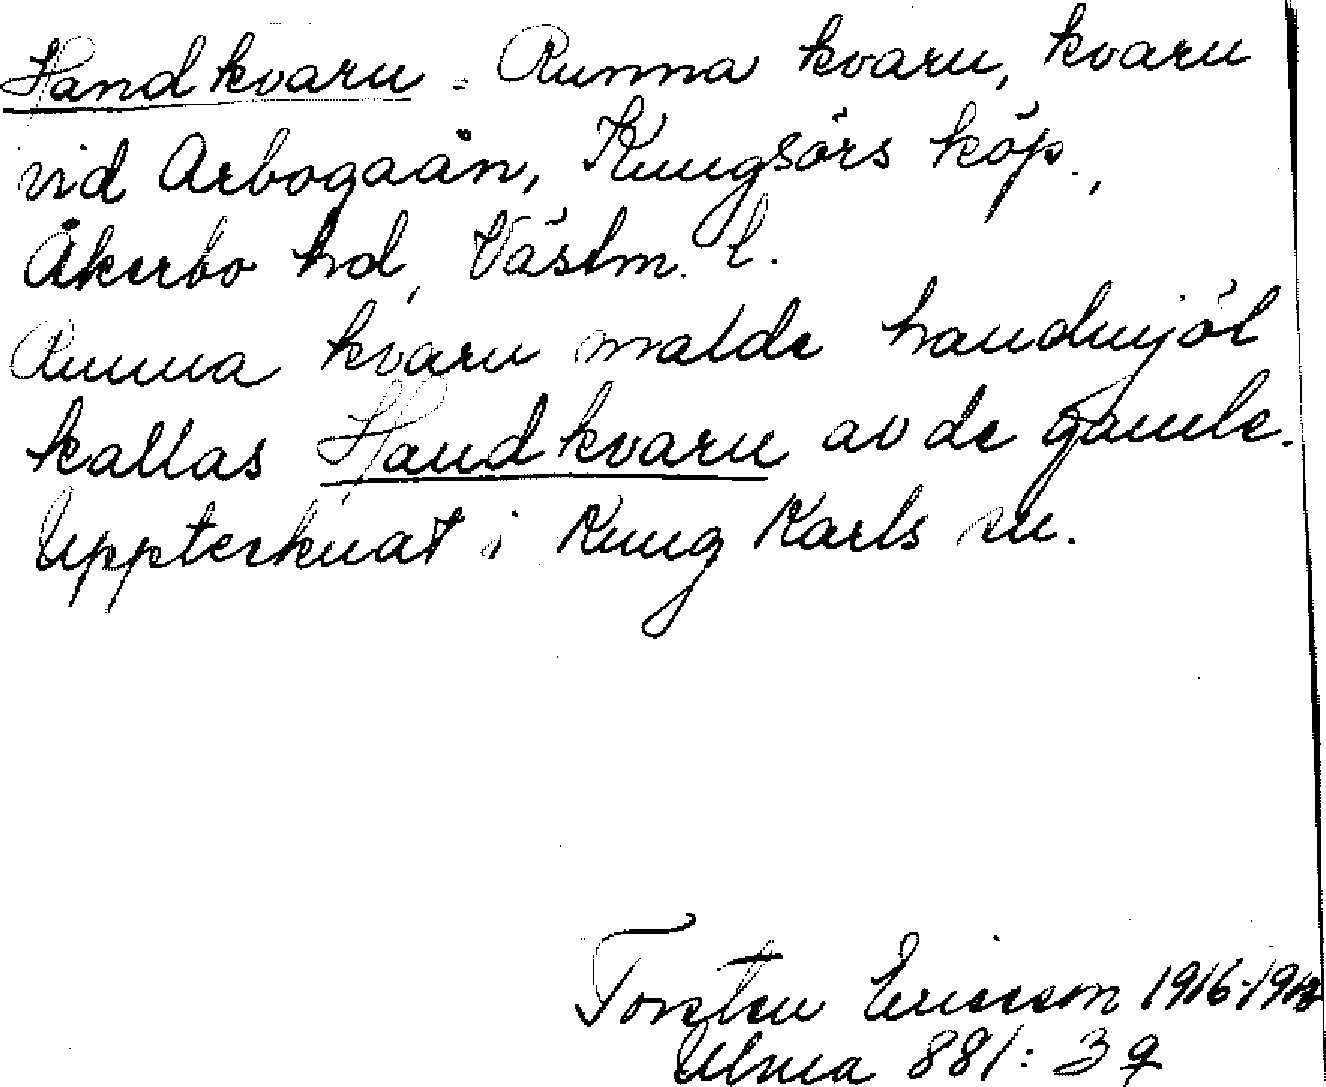 Handkvarn = Runna kvarn, kvarn
vid Arbogaån, Kungsörs köp.,
Åkerbo hd, Västm. l.
Runna kvarn malde handmjöl
kallas Handkvarn av de gamle.
Uppteknat i Kung Karls sn.
Torsten Ericsson 1916-19
Ulma 881: 3 9